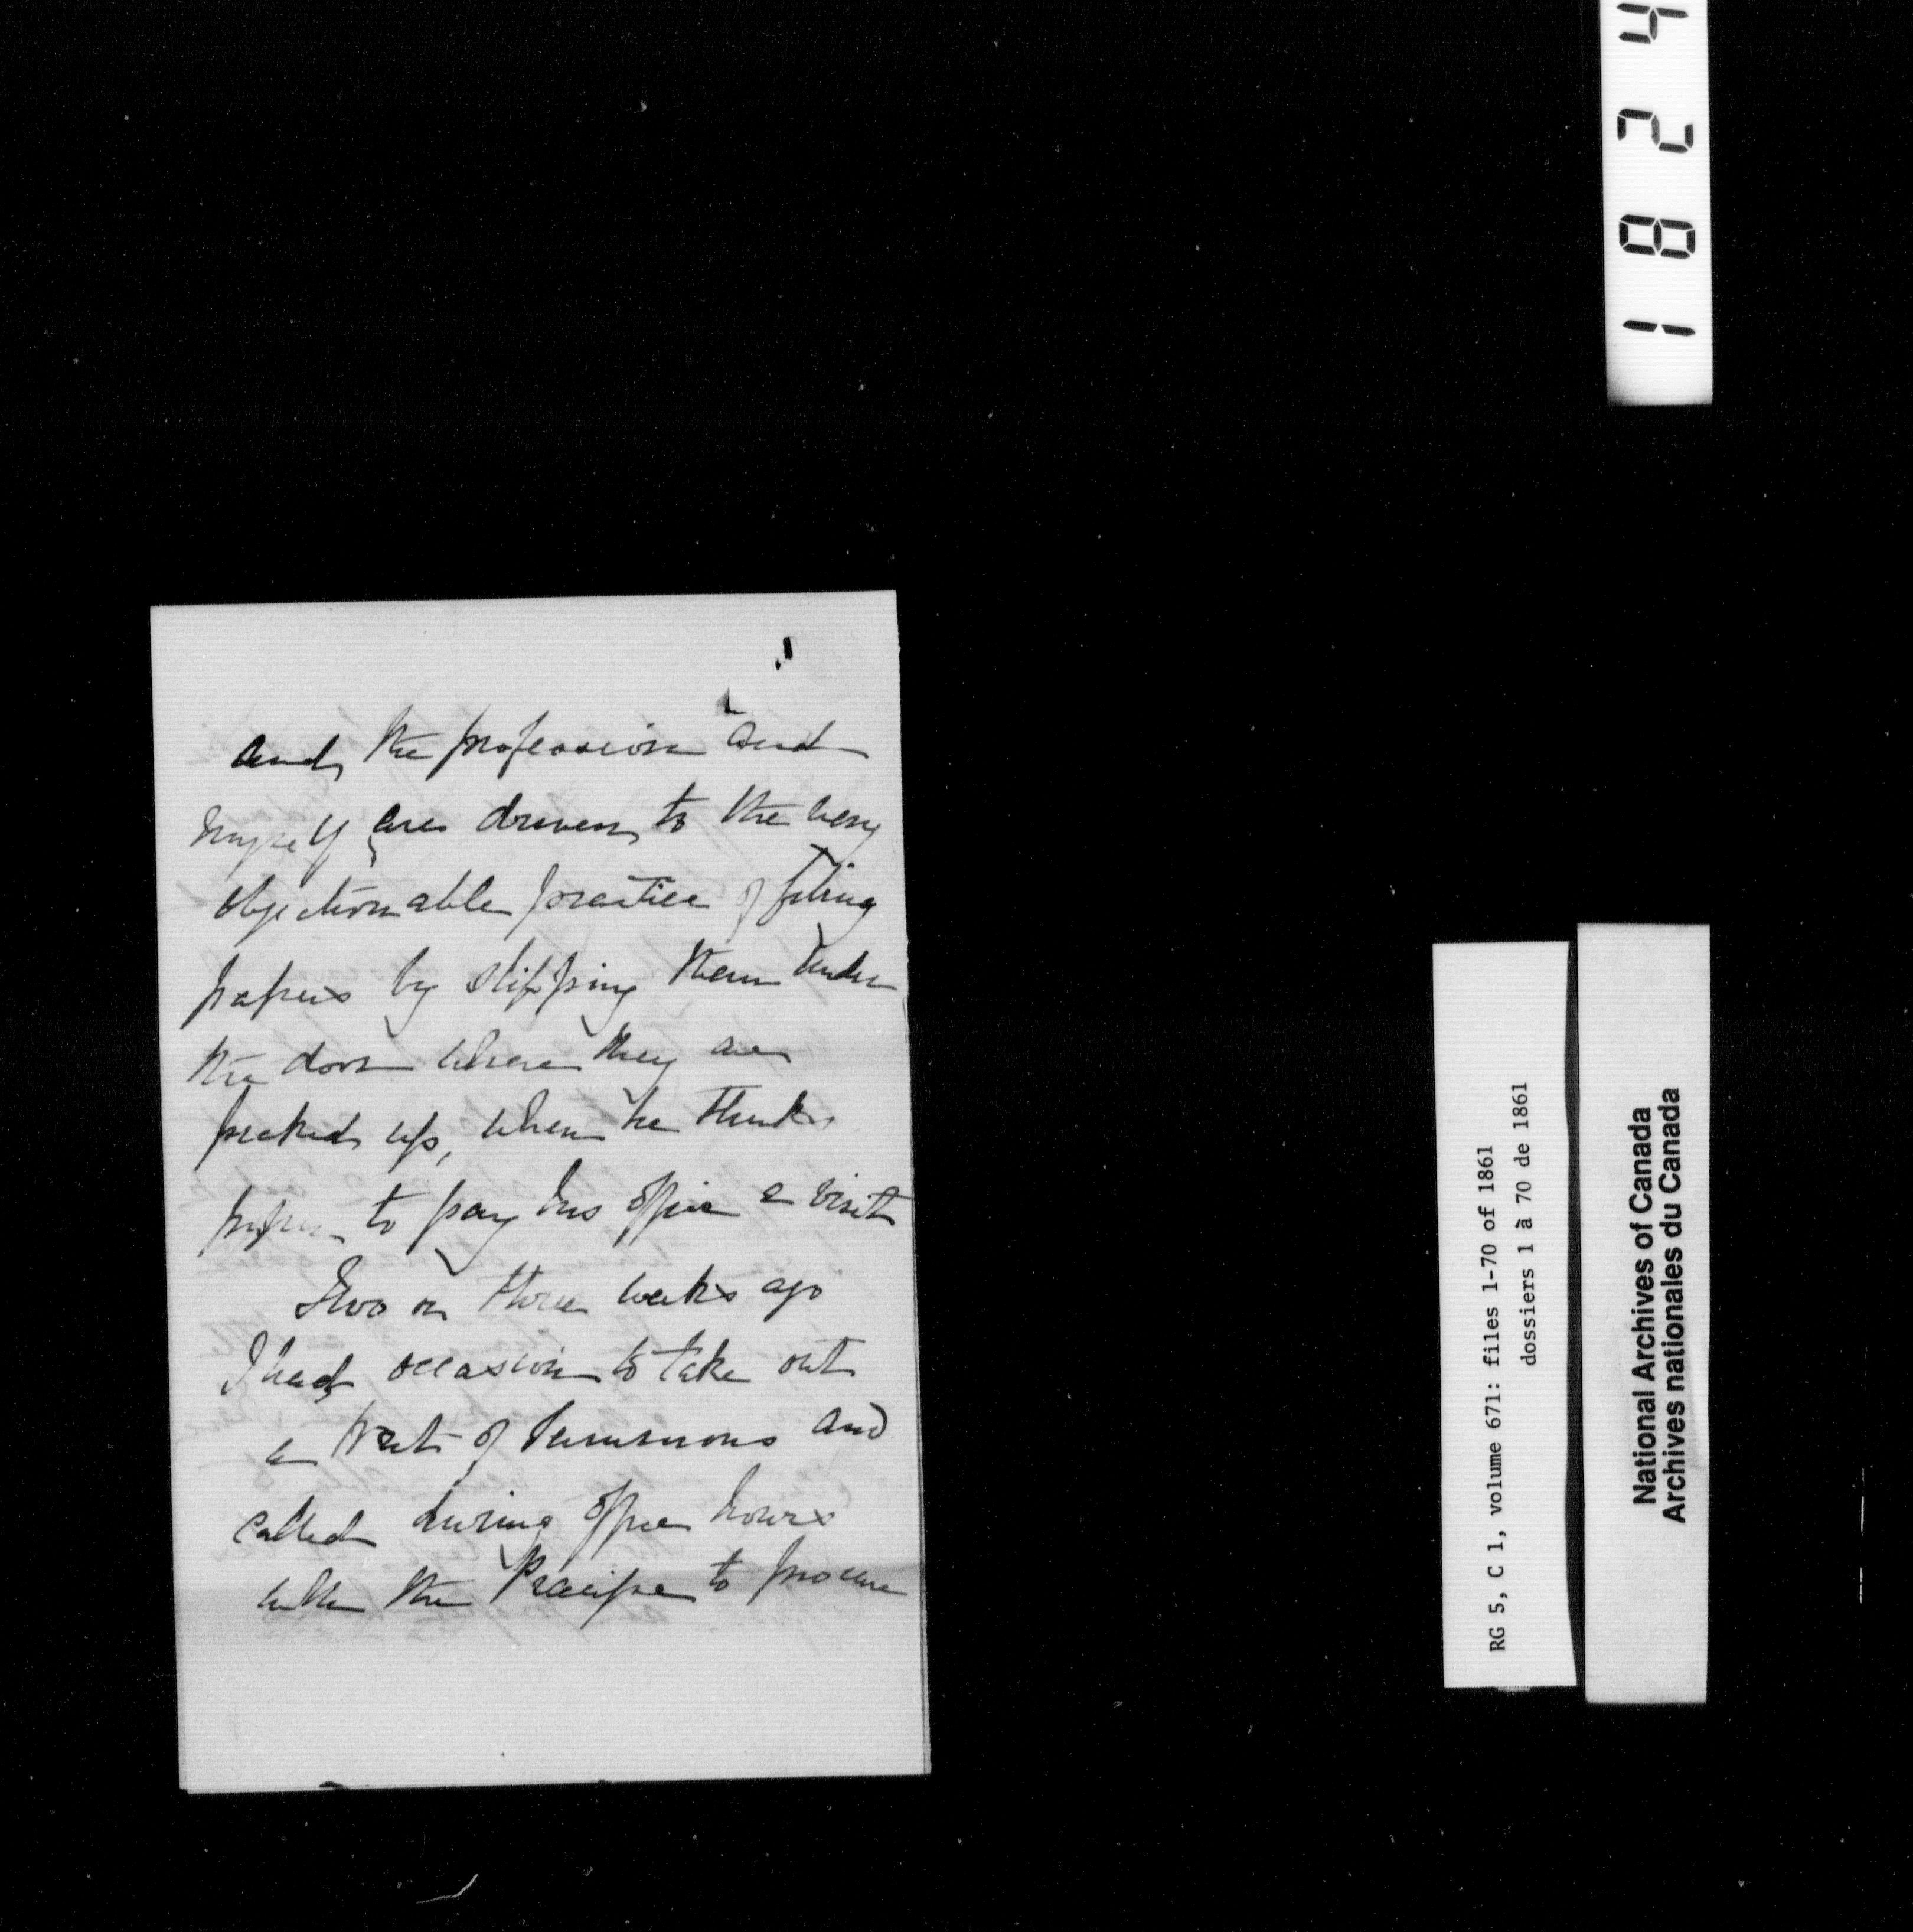 and the profession and
myself are driven to the very
objectionable practice of filing
papers by slipping them under
the door where they are
picked up, when he thinks
proper to pay his office a visit
Two or three weeks ago
I had occasion to take out
a Writ of Summons and
called during office hours
with the Præcipe to procure
1824
RG 5, C 1, volume 671: files 1-70 of 1861
dossiers 1 à 70 de 1861
National Archives of Canada
Archives nationales du Canada